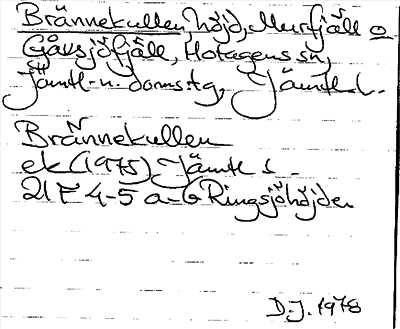 Brännekullen, höjd, Murfjäll o
Gåxsjöfjäll, Hotagens sn,
Jämtl. n. doms.tg, Jämtl l.
Brännekullen
ek (1975) Jämtl l.
21 F 4-5 a-b Ringsjöhöjden
D.J. 1978